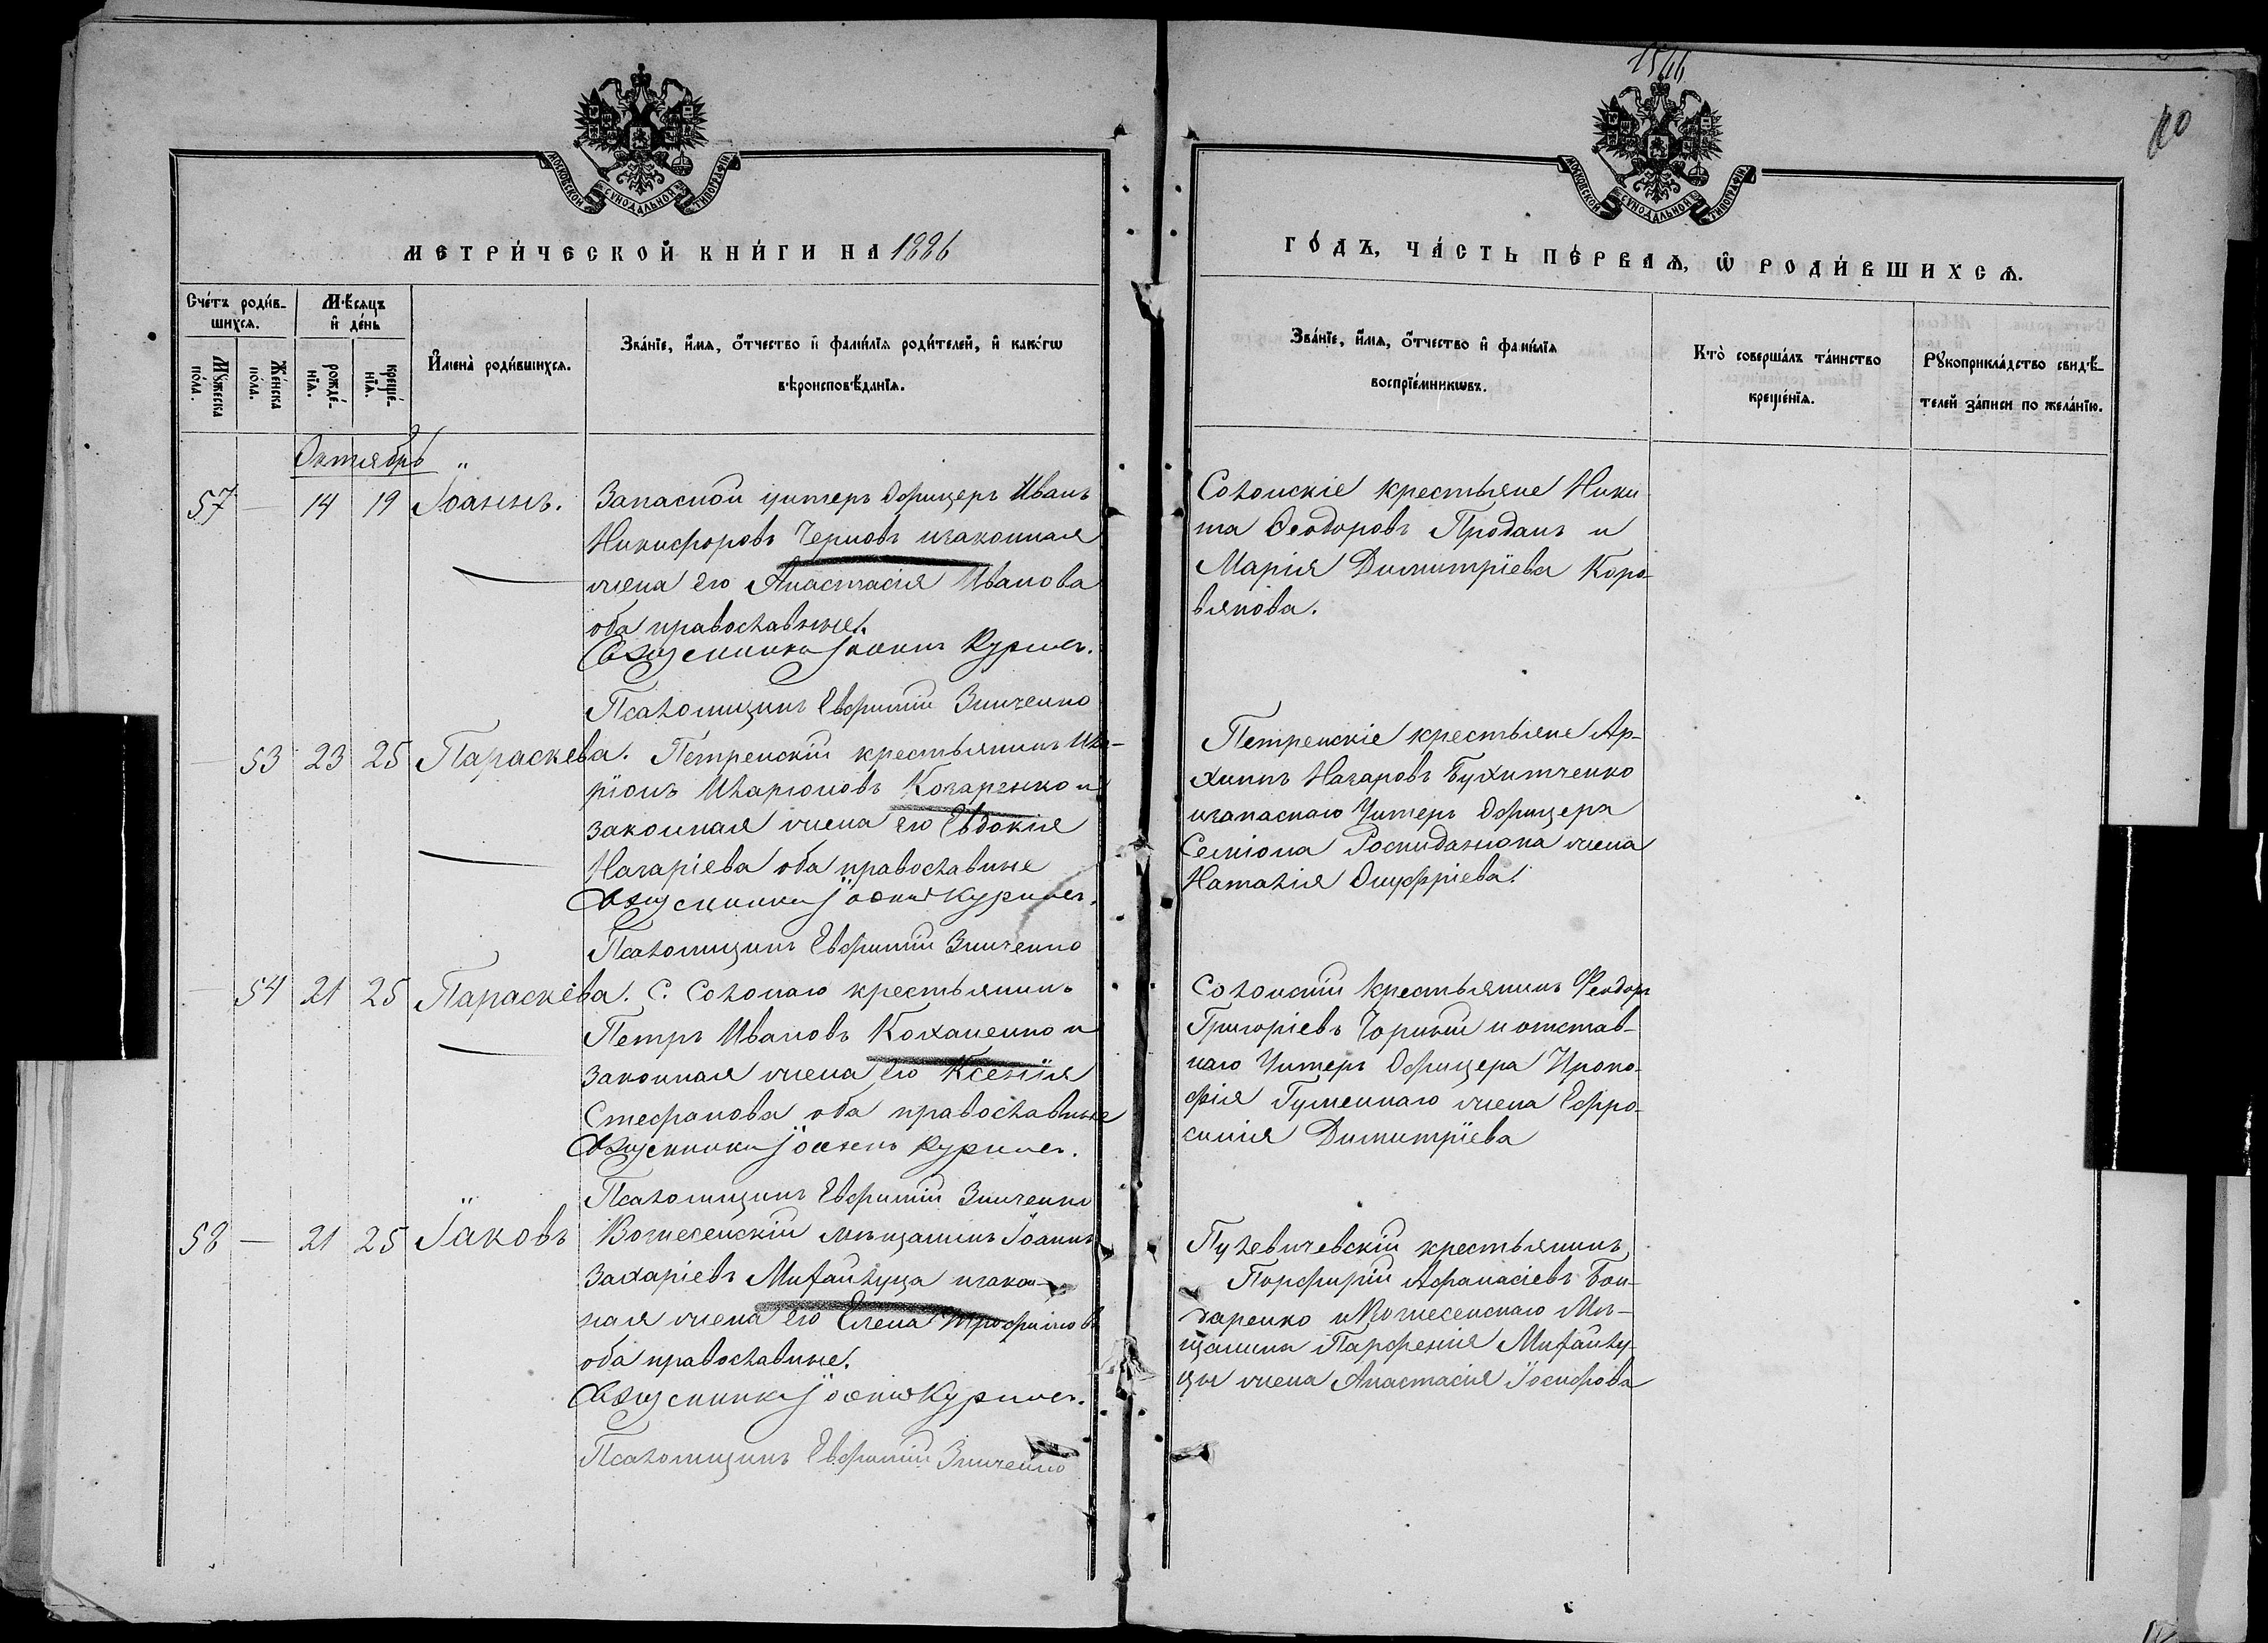 1566
10
МОСКОВСКОЙ СѴНОДАЛЬНОЙ ТИПОГРАФІИ
МОСКОВСКОЙ СѴНОДАЛЬНОЙ ТИПОГРАФІИ
МЕТРИ́ЧЕСКОЙ КНИ́ГИ НА 1886
ГО́ДЪ, ЧА́СТЬ ПЕ́РВАѦ, Ѡ РОДИ́ВШИХСѦ.
Сче́тъ роди́в-
шихсѧ.
Мѣ́сѧцъ
и҆ де́нь
Мꙋ́жеска
по́ла.
Же́нска
по́ла.
рожде́-
нїѧ.
креще́-
нїѧ.
И҆мена̀ роди́вшихсѧ.
Зва́нїе, и҆́мѧ, ѻ҆́тчество и҆ фами́лїѧ роди́телей, и҆ како́гѡ
вѣроисповѣ́данїѧ.
Зва́нїе, и҆́мѧ, ѻ҆́тчество и҆ фами́лїѧ
воспрїе́мникѡвъ.
Кто̀ соверша́лъ та́инство
креще́нїѧ.
Рꙋкоприкла́дство свидѣ́-
телей за́писи по жела́нїю.
Октябрь
57 — 14 19 Іоаннъ. Запасной унтеръ Офицеръ Иванъ
Никифоровъ Черновъ и законная
жена его Анастасія Иванова
оба православные.
Священникъ Іоаннъ
Псаломщикъ Евфимій Зинченко
Солонскіе крестьяне Ники-
та Ѳеодоровъ Проданъ и
Марія Димитріева Коро-
вякова.
— 53 23 25 Параскева. Петренскій крестьянинъ Ила-
ріонъ Иларіоновъ и
законная жена его Евдокія
Назаріева оба православные
Священникъ Іоаннъ
Псаломщикъ Евфимій Зинченко
Петренскіе крестьяне Ар-
хипъ Назаровъ
и запаснаго Унтеръ Офицера
Семіона жена
Наталія Онуфріева.
— 54 21 25 Параскева. С. Солонаго крестьянинъ
Петръ Ивановъ Коханенко и
законная жена его Ксенія
Стефанова оба православные
Священникъ Іоаннъ
Псаломщикъ Евфимій Зинченко
Солонскій крестьянинъ Феодоръ
Григоріевъ Чорный и отстав-
наго Унтеръ Офицера Проко-
фія Гуменнаго жена Ефро-
синія Димитріева
58 — 21 25 Іаковъ Вознесенскій мѣщанинъ Іоаннъ
Захаріевъ Михайлуца и закон-
ная жена его Елена Трофимова
оба православные.
Священникъ Іоаннъ
Псаломщикъ Евфимій Зинченко
крестьянинъ
Порфирій Афанасіевъ Бон-
даренко и Вознесенскаго Мѣ-
щанина Парфенія Михайлу-
цы жена Анастасія Іосифова